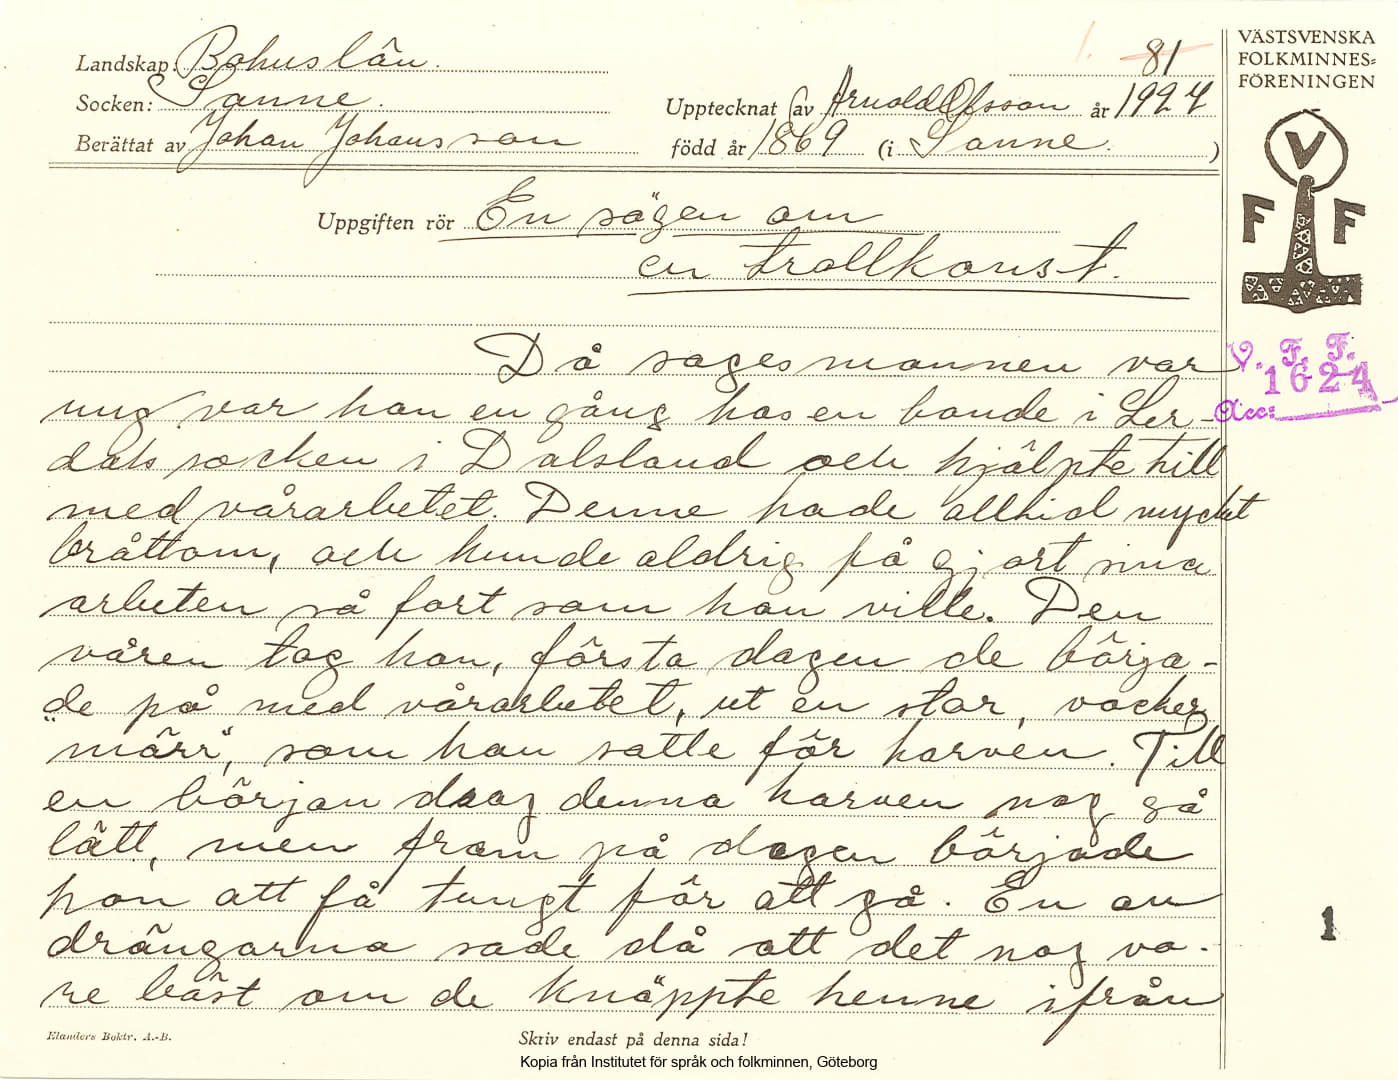 81
VÄSTSVENSKA
FOLKMINNES=
FÖRENINGEN
V
F F
V. F. F.
1624
Acc:
Landskap: Bohuslän.
Socken: Sanne. Upptecknat av Arnold Olsson år 1924
Berättat av Johan Johansson född år 1869 (i Sanne.)
Uppgiften rör En sägen om
en trollkonst.
Då sagesmannen var
ung var han en gång hos en bonde i Ler-
dals socken i Dalsland och hjälpte till
med vårarbetet. Denne hade alltid mycket
bråttom, och kunde aldrig få gjort sina
arbeten så fort som han ville. Den
våren tog han, första dagen de börja-
de på med vårarbetet, ut en stor, vacker
"märr", som han satte för harven. Till
en början drog denna harven nog så
lätt, men fram på dagen började
hon att få tungt för att gå. En av
drängarna sade då att det nog va-
re bäst om de knäppte henne ifrån
1
Elanders Boktr. A.-B.
Skriv endast på denna sida!
Kopia från Institutet för språk och folkminnen, Göteborg